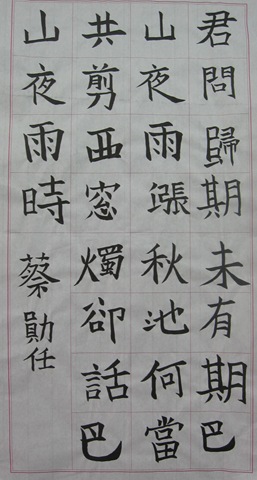 君問歸期未有期巴
山夜雨漲秋池何當
共剪西窓燭卻話巴
山夜雨時
蔡勛任